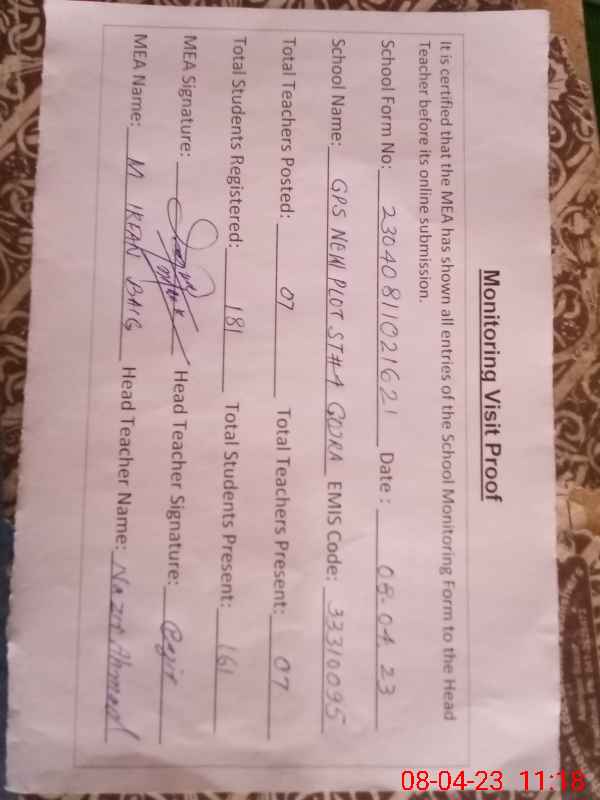 Monitoring Visit Proof
It is certified that the MEA has shown all entries of the School Monitoring Form to the Head
Teacher before its online submission.
School Form No: 23040811021621 Date : 08.04.23
School Name: GPS NEW PLOT ST#1 GOJRA EMIS Code: 33310095
Total Teachers Posted: 07 Total Teachers Present: 07
Total Students Registered: 181 Total Students Present: 161
MEA Signature: Head Teacher Signature:
MEA Name: M IRFAN BAIG Head Teacher Name: Nazir Ahmed
08-04-23 11:18